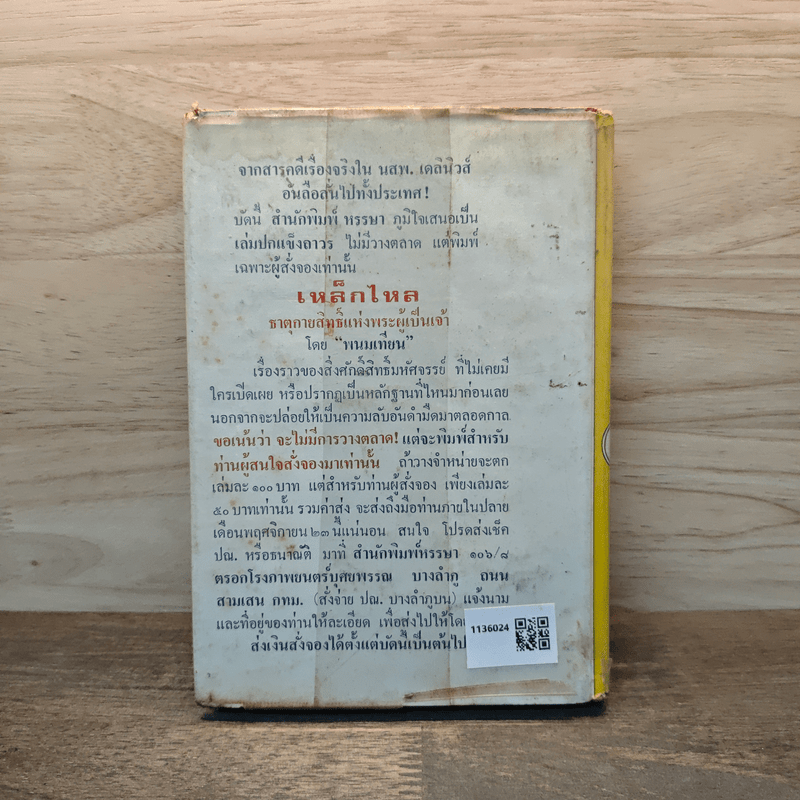 จากสารคดีเรื่องจริงใน นสพ. เดลินิวส์
อันลือลั่นไปทั้งประเทศ!
บัดนี้ สำนักพิมพ์ หรรษา ภูมิใจเสนอเป็น
เล่มปกแข็งถาวร ไม่มีวางตลาด แต่พิมพ์
เฉพาะผู้สั่งจองเท่านั้น
เหล็กไหล
ธาตุกายสิทธิ์แห่งพระผู้เป็นเจ้า
โดย "พนมเทียน"
เรื่องราวของสิ่งศักดิ์สิทธิ์มหัศจรรย์ ที่ไม่เคยมี
ใครเปิดเผย หรือปรากฏเป็นหลักฐานที่ไหนมาก่อนเลย
นอกจากจะปล่อยให้เป็นความลับอันดำมืดมาตลอดกาล
ขอเน้นว่า จะไม่มีการวางตลาด! แต่จะพิมพ์สำหรับ
ท่านผู้สนใจสั่งจองมาเท่านั้น ถ้าวางจำหน่ายจะตก
เล่มละ ๑๐๐ บาท แต่สำหรับท่านผู้สั่งจอง เพียงเล่มละ
๕๐ บาทเท่านั้น รวมค่าส่ง จะส่งถึงมือท่านภายในปลาย
เดือนพฤศจิกายน ๒๓ นี้แน่นอน สนใจ โปรดส่งเช็ค
ปณ. หรือธนาณัติ มาที่ สำนักพิมพ์หรรษา ๑๐๖/๘
ตรอกโรงภาพยนตร์บุศยพรรณ บางลำภู ถนน
สามเสน กทม. (สั่งจ่าย ปณ. บางลำภูบน) แจ้งนาม
และที่อยู่ของท่านให้ละเอียด เพื่อส่งไปให้โด
ส่งเงินสั่งจองได้ตั้งแต่บัดนี้เป็นต้นไป
1136024